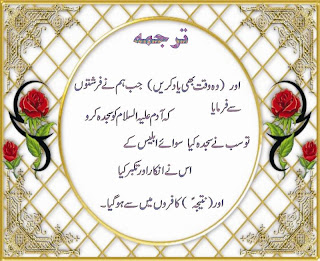 ترجمہ
اور (وہ وقت بھی یاد کریں) جب ہم نے فرشتوں
سے فرمایا
کہ آدم علیہ السلام کو سجدہ کرو
تو سب نے سجدہ کیا سوائے ابلیس کے
اس نے انکار اور تکبر کیا
اور (نتیجۃً) کافروں میں سے ہو گیا۔